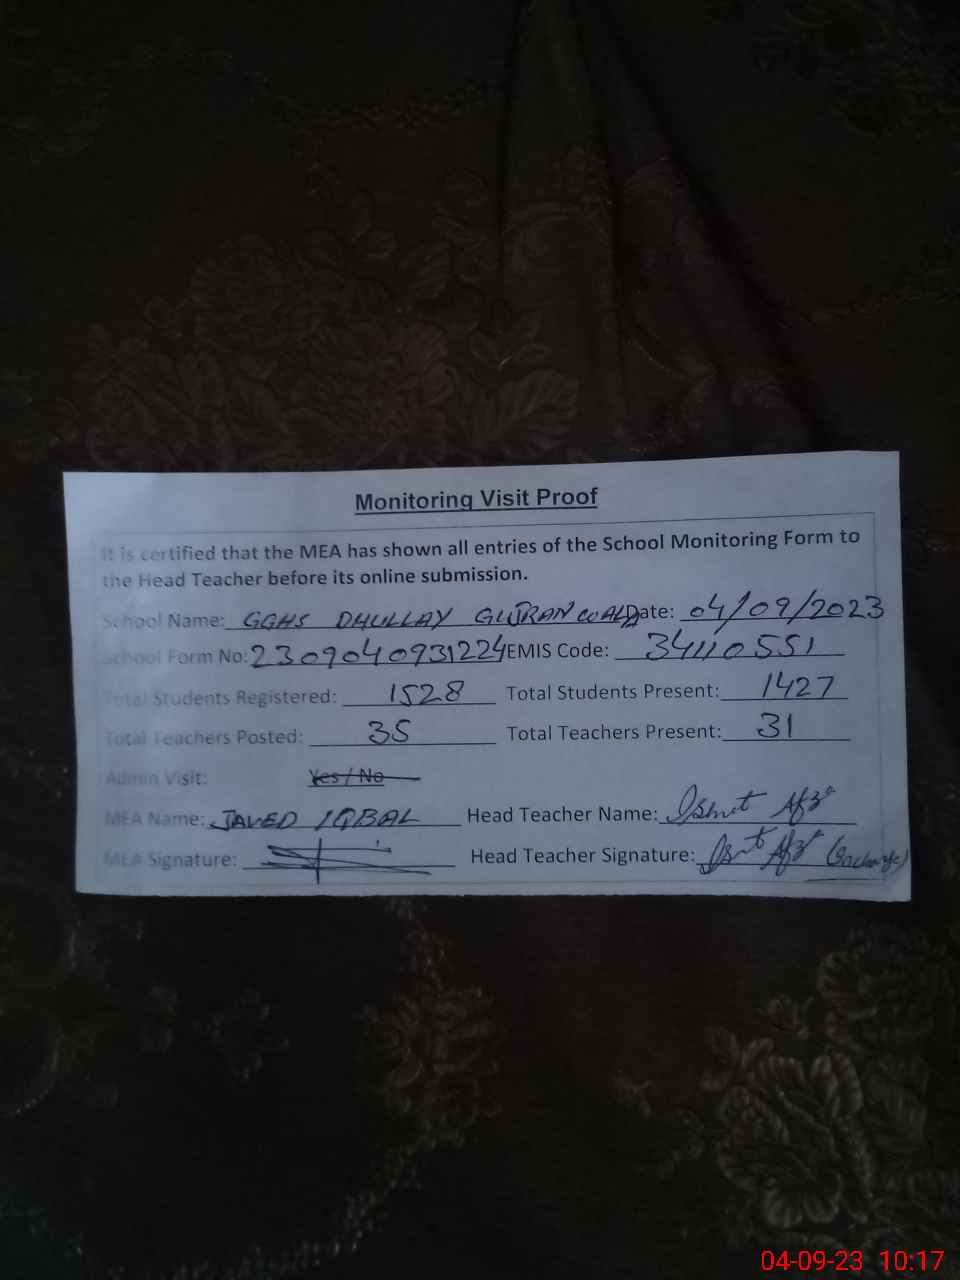 Monitoring Visit Proof
It is certified that the MEA has shown all entries of the School Monitoring Form to
the Head Teacher before its online submission.
School Name: GGHS DHULLAY GUJRANWALA Date: 04/09/2023
School Form No: 2309040931224 EMIS Code: 34110551
Total Students Registered: 1528 Total Students Present: 1427
Total Teachers Posted: 35 Total Teachers Present: 31
Admin Visit: Yes / No
MEA Name: JAVED IQBAL Head Teacher Name:
MEA Signature: Head Teacher Signature:
04-09-23 10:17